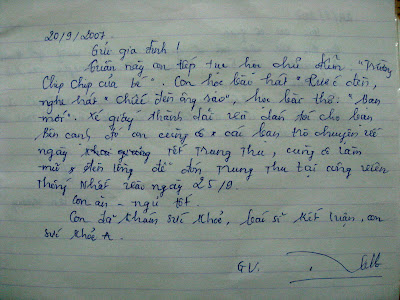 20/9/2007.
Gửi gia đình!
Tuần này con tiếp tục học chủ điểm "Trường
Chip Chip của bé". Con học bài hát "Rước đèn,
nghe hát "Chiếc đèn ông sao", học bài thơ: "Bạn
mới". Xé giấy thành dải và dán áo cho bạn
Bên cạnh đó con cùng cô + các bạn trò chuyện về
ngày tết Trung Thu, cùng cô làm
mũ + đèn lồng để đón Trung Thu tại công viên
Thống Nhất vào ngày 25/9.
Con ăn - ngủ tốt.
Con đã khám sức khỏe, bác sĩ kết luận, con
sức khỏe A.
GV.